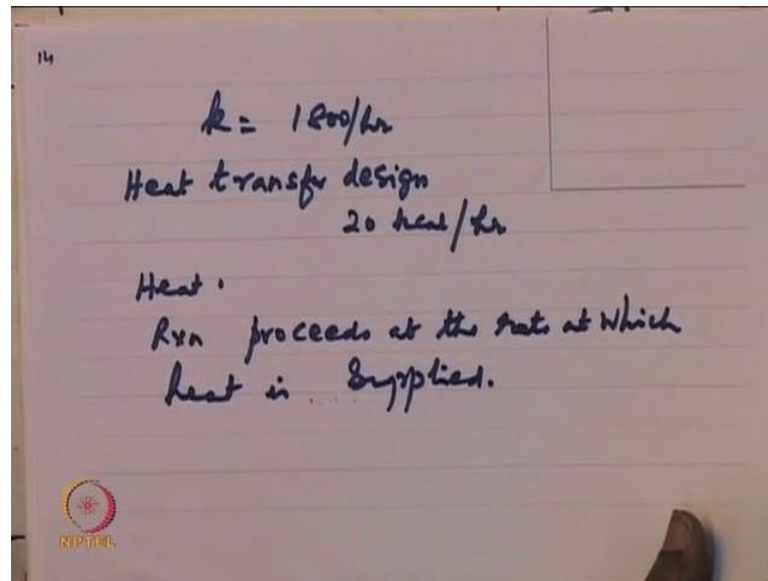 14
k = 1800/hr
Heat transfer design
20 kcal/hr
Heat.
Rxn proceeds at the rate at which
heat is supplied.
NPTEL